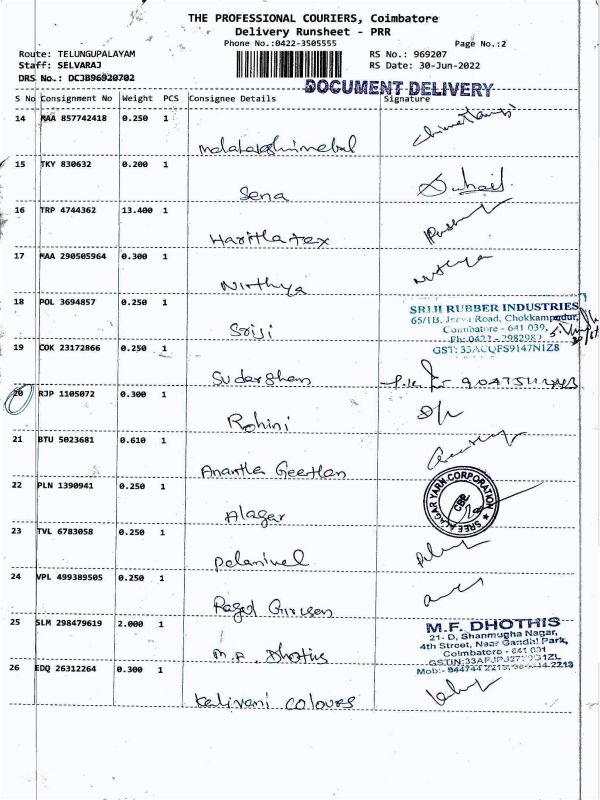 THE PROFESSIONAL COURIERS, Coimbatore
Delivery Runsheet - PRR
Phone No.:0422-3505555
Page No.:2
Route: TELUNGUPALAYAM
RS No.: 969207
Staff: SELVARAJ
RS Date: 30-Jun-2022
DRS No.: DCJB96920702
DOCUMENT DELIVERY
S No Consignment No Weight PCS Consignee Details Signature
14 MAA 857742418 0.250 1
15 TKY 830632 0.200 1
Sena
Suhail
16 TRP 4744362 13.400 1
Haritha tex
17 MAA 290505964 0.300 1
Nithya
18 POL 3694857 0.250 1
Sriji
SRIJI RUBBER INDUSTRIES
65/1B, Jeeva Road, Chokkampudur,
Coimbatore - 641 039,
Ph: 0422 -
GST: 33ACQFS9147N1Z8
19 COK 23172866 0.250 1
Sudarshan
20 RJP 1105072 0.300 1
Rohini
21 BTU 5023681 0.610 1
Anantha Geethan
22 PLN 1390941 0.250 1
Alagar
SREE ALAGAR YARN CORPORATION
CBE
23 TVL 6783058 0.250 1
Palanivel
24 VPL 499389505 0.250 1
25 SLM 298479619 2.000 1
M.F. Dhotis
M.F. DHOTHIS
21- D, Shanmugha Nagar,
4th Street, Near Gandhi Park,
Coimbatore - 641 001
26 EDQ 26312264 0.300 1
Kalivani colours